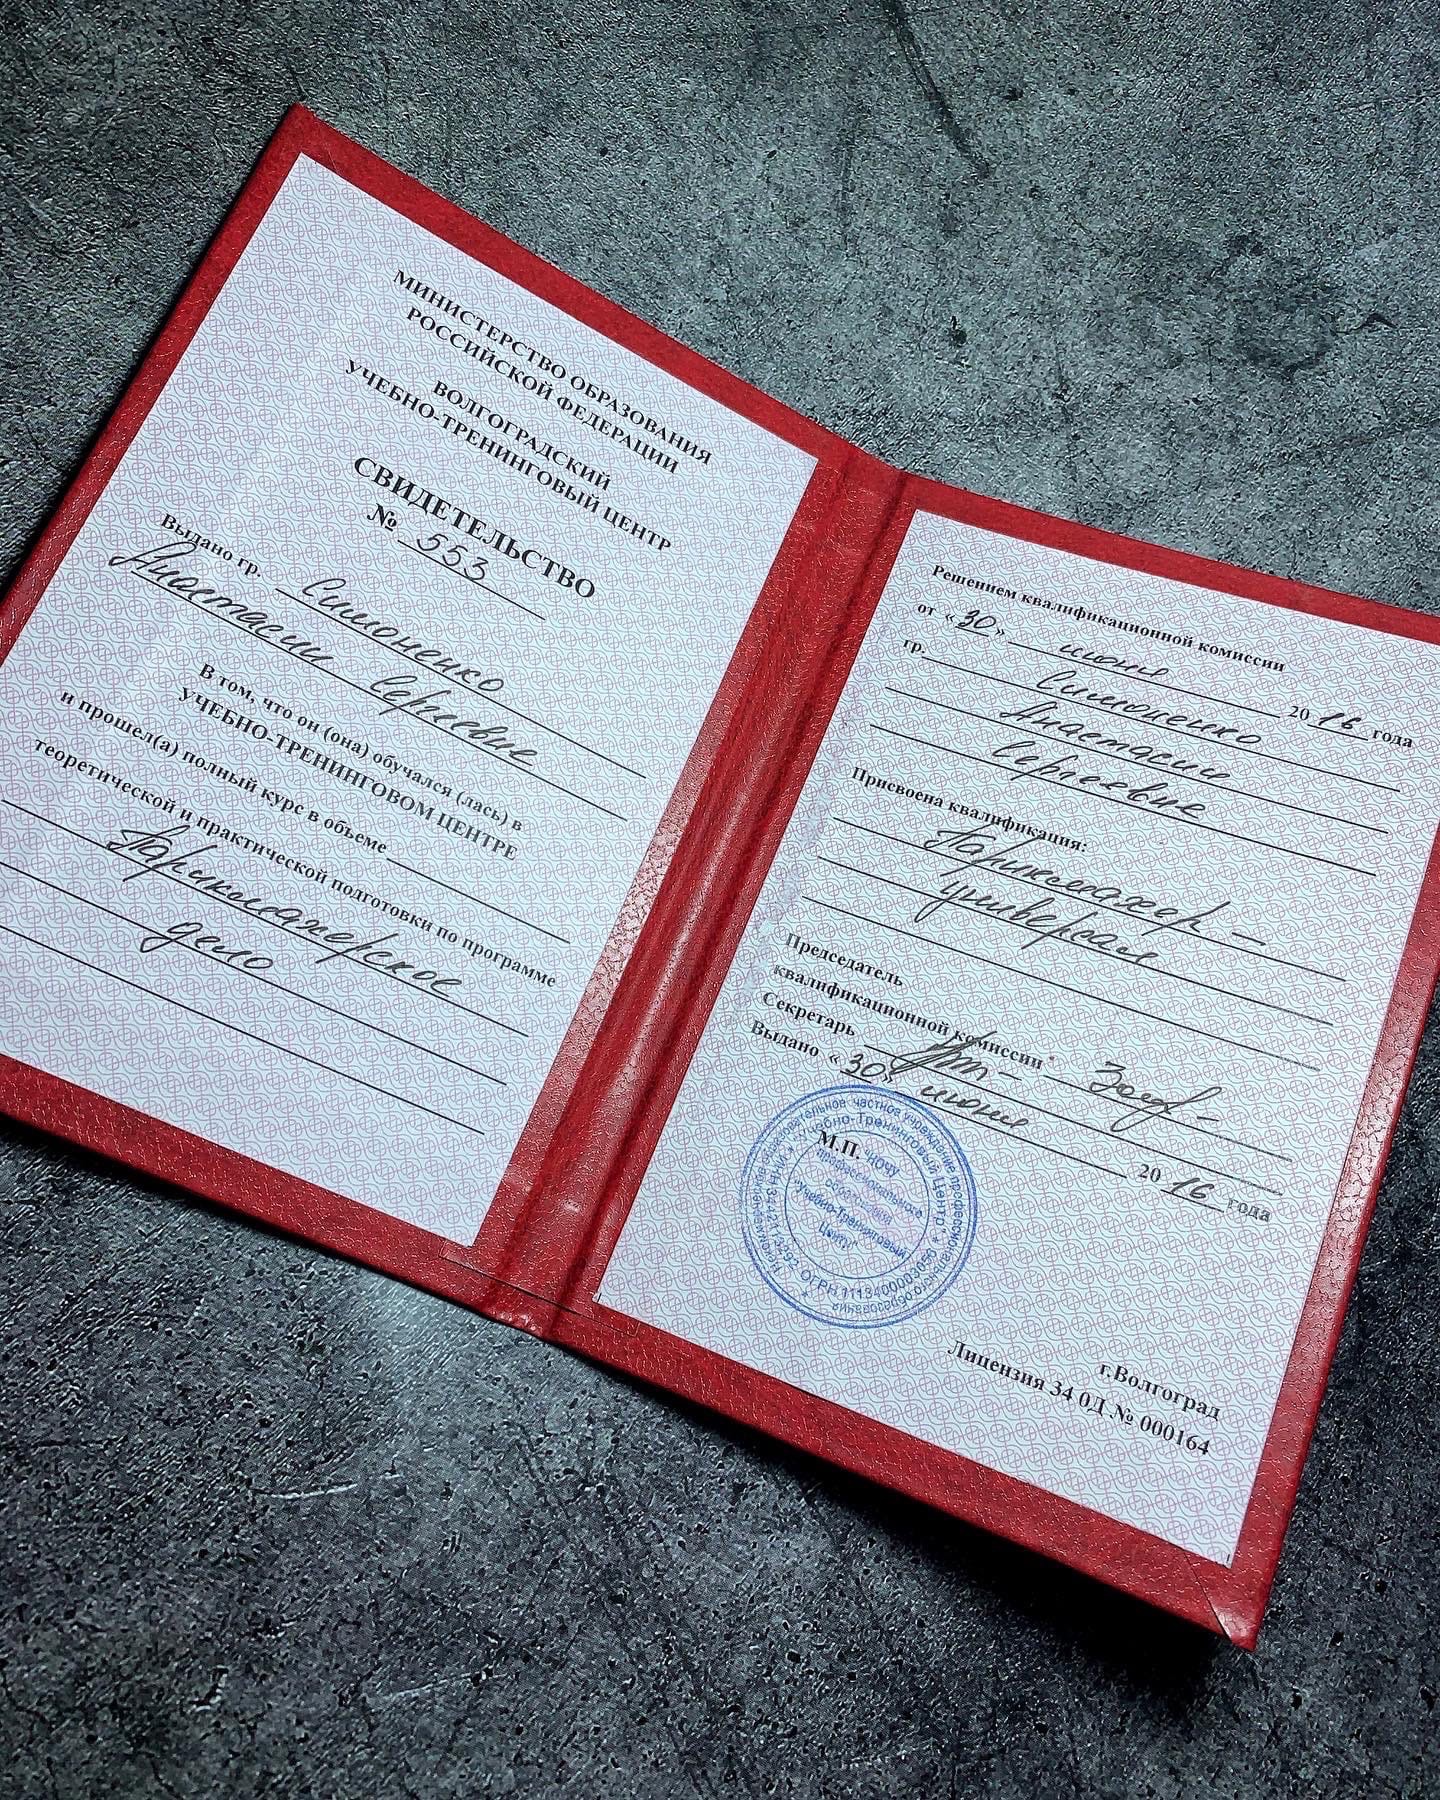 МИНИСТЕРСТВО ОБРАЗОВАНИЯ
РОССИЙСКОЙ ФЕДЕРАЦИИ
ВОЛГОГРАДСКИЙ
УЧЕБНО-ТРЕНИНГОВЫЙ ЦЕНТР
СВИДЕТЕЛЬСТВО
№ 553
Выдано гр. Симоненко
Анастасии Сергеевне
В том, что он (она) обучался (лась) в
УЧЕБНО-ТРЕНИНГОВОМ ЦЕНТРЕ
и прошел(а) полный курс в объеме
теоретической и практической подготовки по программе
Парикмахерское
дело
Решением квалификационной комиссии
от «30» июня 2016 года
гр. Симоненко
Анастасии
Сергеевне
Присвоена квалификация:
Парикмахер –
универсал
Председатель
квалификационной комиссии
Секретарь
Выдано «30» июня 2016 года
М.П.
"НОЧУ
профессионального
образования
"Учебно-Тренинговый
Центр"
частное учреждение профессионального образования
"Учебно-Тренинговый Центр"
г.Волгоград
Лицензия 34 ОД № 000164